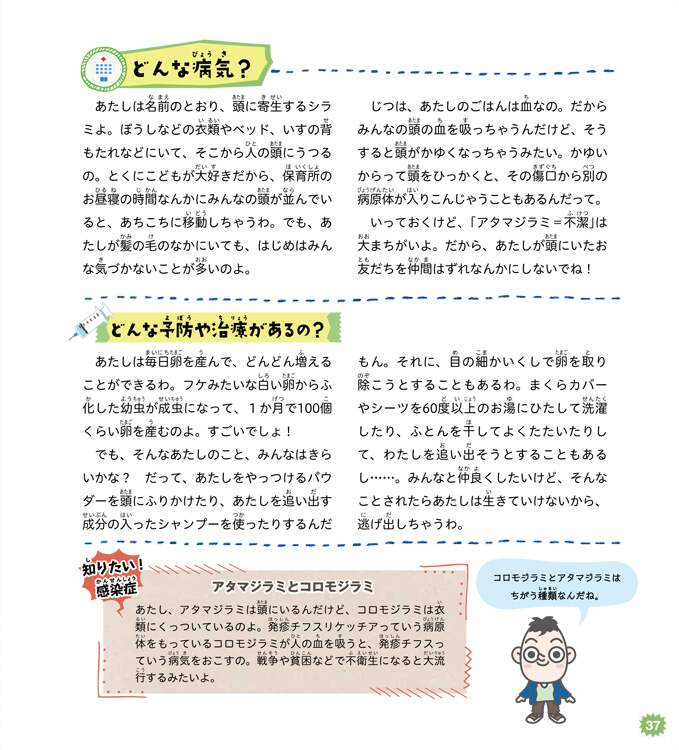 どんな病気？
あたしは名前のとおり、頭に寄生するシラ
ミよ。ぼうしなどの衣類やベッド、いすの背
もたれなどにいて、そこから人の頭にうつる
の。とくにこどもが大好きだから、保育所の
お昼寝の時間なんかにみんなの頭が並んでい
ると、あちこちに移動しちゃうわ。でも、あ
たしが髪の毛のなかにいても、はじめはみん
な気づかないことが多いのよ。
じつは、あたしのごはんは血なの。だから
みんなの頭の血を吸っちゃうんだけど、そう
すると頭がかゆくなっちゃうみたい。かゆい
からって頭をひっかくと、その傷口から別の
病原体が入りこんじゃうこともあるんだって。
いっておくけど、「アタマジラミ＝不潔」は
大まちがいよ。だから、あたしが頭にいたお
友だちを仲間はずれなんかにしないでね！
どんな予防や治療があるの？
あたしは毎日卵を産んで、どんどん増える
ことができるわ。フケみたいな白い卵からふ
化した幼虫が成虫になって、１か月で100個
くらい卵を産むのよ。すごいでしょ！
でも、そんなあたしのこと、みんなはきら
いかな？　だって、あたしをやっつけるパウ
ダーを頭にふりかけたり、あたしを追い出す
成分の入ったシャンプーを使ったりするんだ
もん。それに、目の細かいくしで卵を取り
除こうとすることもあるわ。まくらカバー
やシーツを60度以上のお湯にひたして洗濯
したり、ふとんを干してよくたたいたりし
て、わたしを追い出そうとすることもある
し……。みんなと仲良くしたいけど、そんな
ことされたらあたしは生きていけないから、
逃げ出しちゃうわ。
知りたい！
感染症
アタマジラミとコロモジラミ
あたし、アタマジラミは頭にいるんだけど、コロモジラミは衣
類にくっついているのよ。発疹チフスリケッチアっていう病原
体をもっているコロモジラミが人の血を吸うと、発疹チフスっ
ていう病気をおこすの。戦争や貧困などで不衛生になると大流
行するみたいよ。
コロモジラミとアタマジラミは
ちがう種類なんだね。
37